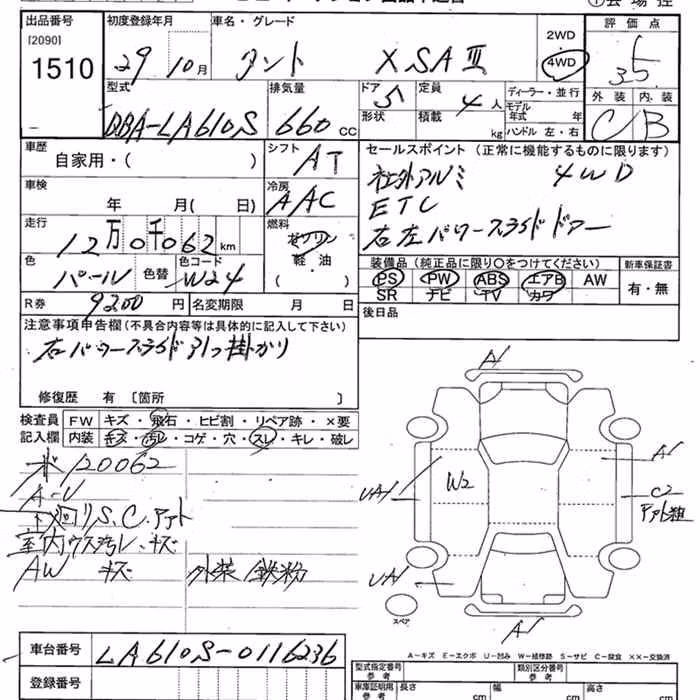 出品番号 初度登録年月 車名・グレード 評価点
[2090] 2WD
1510 29 10月 タント X SAⅢ 4WD 3.5
型式 排気量 ドア 定員 ディーラー・並行 外装 内装
DBA-LA610S 660 CC 5 4人 モデル年式 年 C B
形状 積載 kg ハンドル 左・右
車歴 シフト セールスポイント (正常に機能するものに限ります)
自家用・( ) AT 社外アルミ 4WD
車検 冷房 ETC
年 月( 日) AAC 右左パワースライドドアー
走行 燃料
12万0千062km ガソリン
色 色替 色コード 軽油 装備品 (純正品に限り○をつけてください) 新車保証書
パール W24 ( ) PS PW ABS エアB AW 有・無
R券 9200円 名変期限 月 日 SR ナビ TV カワ
注意事項申告欄(不具合内容等は具体的に記入して下さい) 後日品
右パワースライド引っ掛かり
修復歴 有 〔箇所 〕
検査員 FW キズ・飛石・ヒビ割・リペア跡・×要
記入欄 内装 キズ・汚レ・コゲ・穴・スレ・キレ・破レ
120062
A-U
下回りS.C.アト
室内ウス汚レ、キズ
AW キズ 外装鉄粉
A1
A1
W2
UA1
C2
UA1
スペア
A1
A-キズ E-エクボ U-凹み W-補修跡 S-サビ C-腐食 ××-交換済
車台番号 LA610S-0116236
登録番号
型式指定番号 参考 類別区分番号 参考
車庫証明用 参考 長さ cm 幅 cm 高さ cm